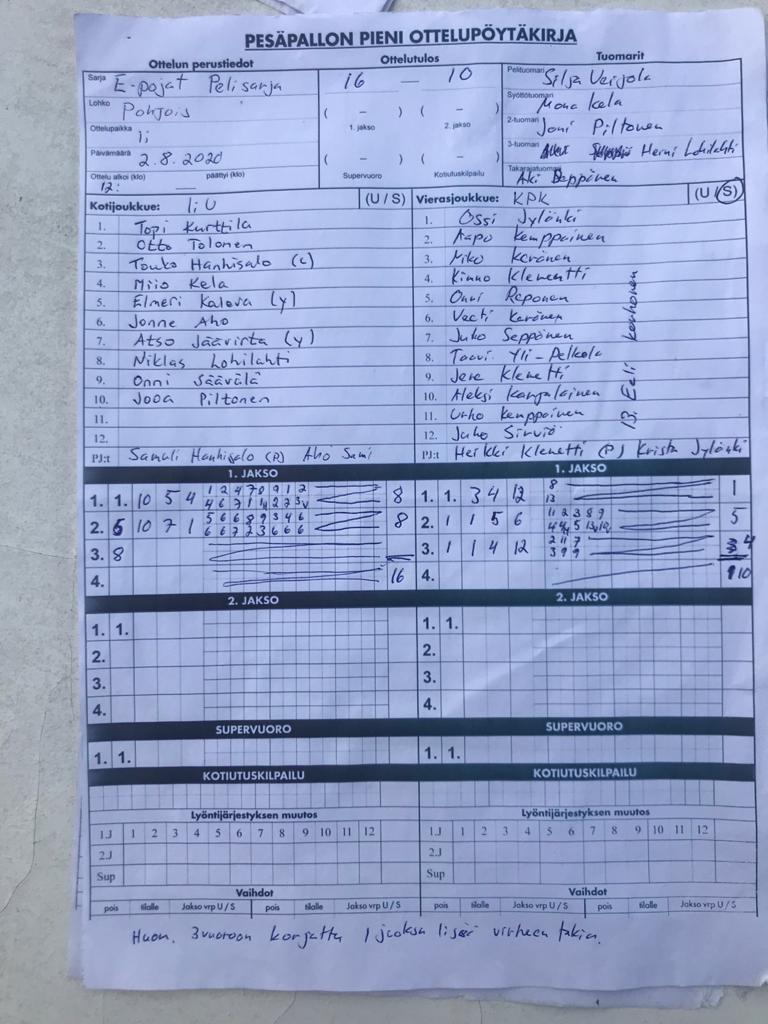 PESÄPALLON PIENI OTTELUPÖYTÄKIRJA
Ottelun perustiedot
Ottelutulos
Tuomarit
Sarja E-pojat Pelisarja
16 — 10
Pelituomari Silja Veijola
Lohko Pohjois
( – ) ( – )
1. jakso 2. jakso
Syöttötuomari Mona Kela
Ottelupaikka Ii
2-tuomari Joni Piltonen
Päivämäärä 2.8.2020
( – ) ( – )
Supervuoro Kotiutuskilpailu
3-tuomari Henni Lohilahti
Ottelu alkoi (klo) päättyi (klo)
12:
Takarajatuomari Aki Seppänen
Kotijoukkue: IiU (U / S)
1. Topi Kurttila
2. Otto Tolonen
3. Touko Hanhisalo (c)
4. Miio Kela
5. Elmeri Kaleva (y)
6. Jonne Aho
7. Atso Jäävirta (y)
8. Niklas Lohilahti
9. Onni Säävälä
10. Jooa Piltonen
11.
12.
PJ:t Samuli Hanhisalo (P) Aho Sami
Vierasjoukkue: KPK (U / S)
1. Ossi Jylönki
2. Aapo Kemppainen
3. Miko Keränen
4. Kimmo Klemetti
5. Onni Reponen
6. Veeti Keränen
7. Juho Seppänen
8. Taavi Yli-Pelkola
9. Jere Klemetti
10. Aleksi Kangalainen
11. Urho Kemppainen
12. Juho Sirviö
13. Eeli
PJ:t Heikki Klemetti (P) Krista Jylönki
1. JAKSO
1. 1. 10 5 4
8
2. 6 10 7 1
5 6 6 8 9 3 4 6
6 6 7 2 3 6 6 6
8
3. 8
4. 16
1. JAKSO
1. 1. 3 4 12
8
13
1
2. 1 1 5 6
11 2 3 8 9
5
3. 1 1 4 12
2 11 7
3 9 9
4
4. 10
2. JAKSO
1. 1.
2.
3.
4.
2. JAKSO
1. 1.
2.
3.
4.
SUPERVUORO
1. 1.
SUPERVUORO
1. 1.
KOTIUTUSKILPAILU
KOTIUTUSKILPAILU
Lyöntijärjestyksen muutos
1.J 1 2 3 4 5 6 7 8 9 10 11 12
2.J
Sup
Lyöntijärjestyksen muutos
1.J 1 2 3 4 5 6 7 8 9 10 11 12
2.J
Sup
Vaihdot
pois tilalle Jakso vrp U / S pois tilalle Jakso vrp U / S
Vaihdot
pois tilalle Jakso vrp U / S pois tilalle Jakso vrp U / S
Huom. 3 vuoroon korjattu 1 juoksu lisää virheen takia.